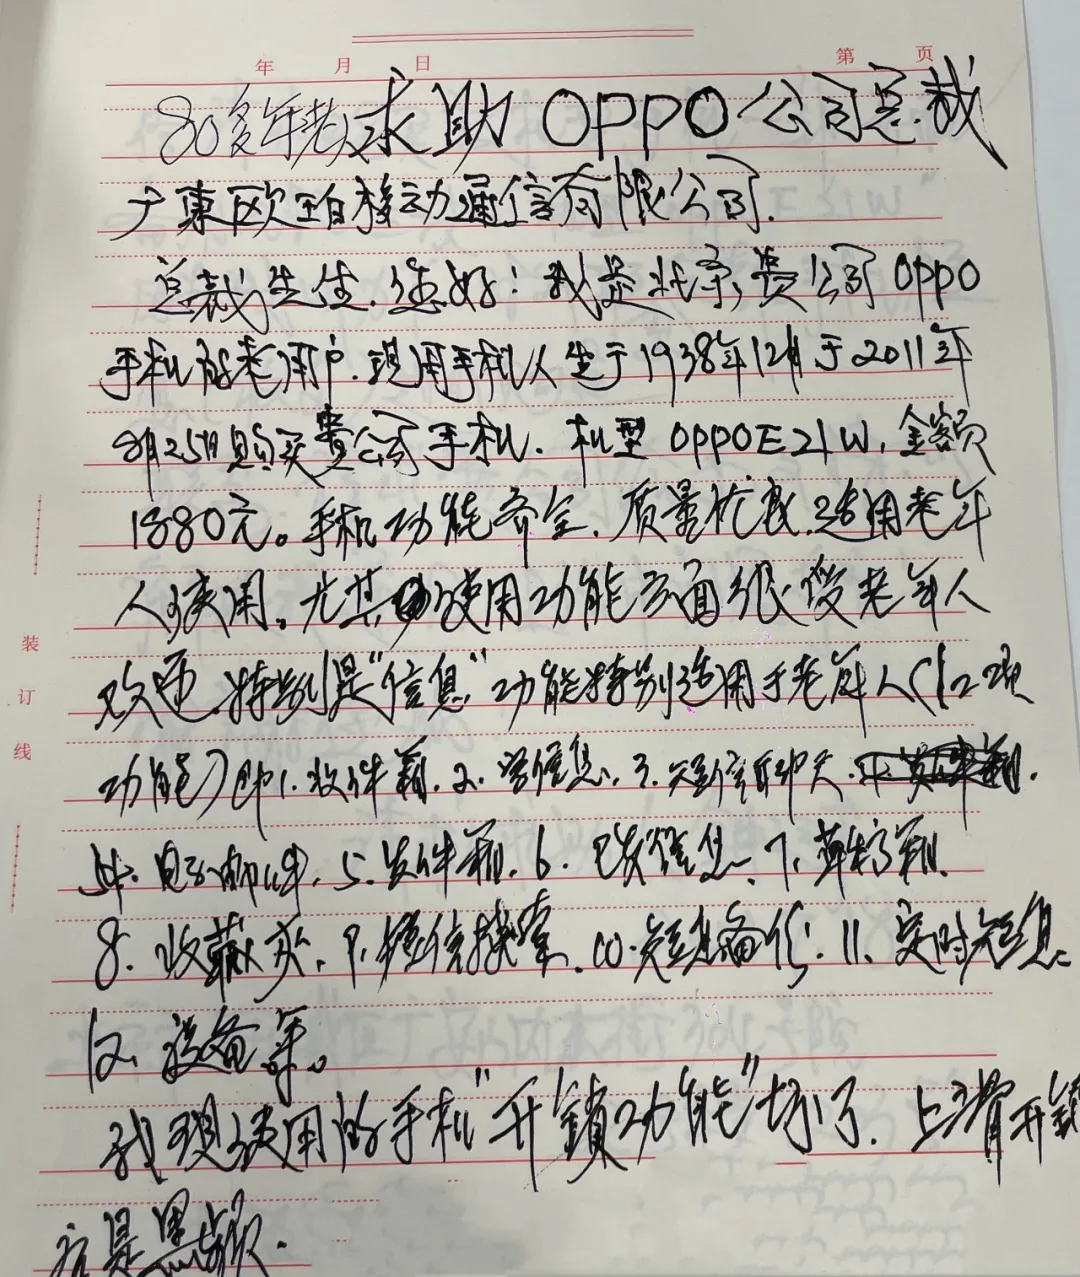 年 月 日 第 页
80多年老人求助OPPO公司总裁
广東欧珀移动通信有限公司.
总裁先生.您好!我是北京贵公司OPPO
手机的老用户.现用手机人生于1938年12月于2011年
8月25日购买贵公司手机.机型OPPOE21W,金额
1880元。手机功能齐全.质量优良.适用老年
人使用。尤其使用功能方面很受老年人
欢迎.特别是“信息”功能特别适用于老年人(12项
功能)即1.收件箱.2.写信息.3.短信聊天.
4.电子邮件.5.发件箱.6.已发信息.7.草稿箱.
8.收藏夹.9.短信搜索.10.短息备份.11.定时短息.
12.设备等。
我现使用的手机“开鎖功能”坏了.上滑开鎖
后是黑频.
装
订
线